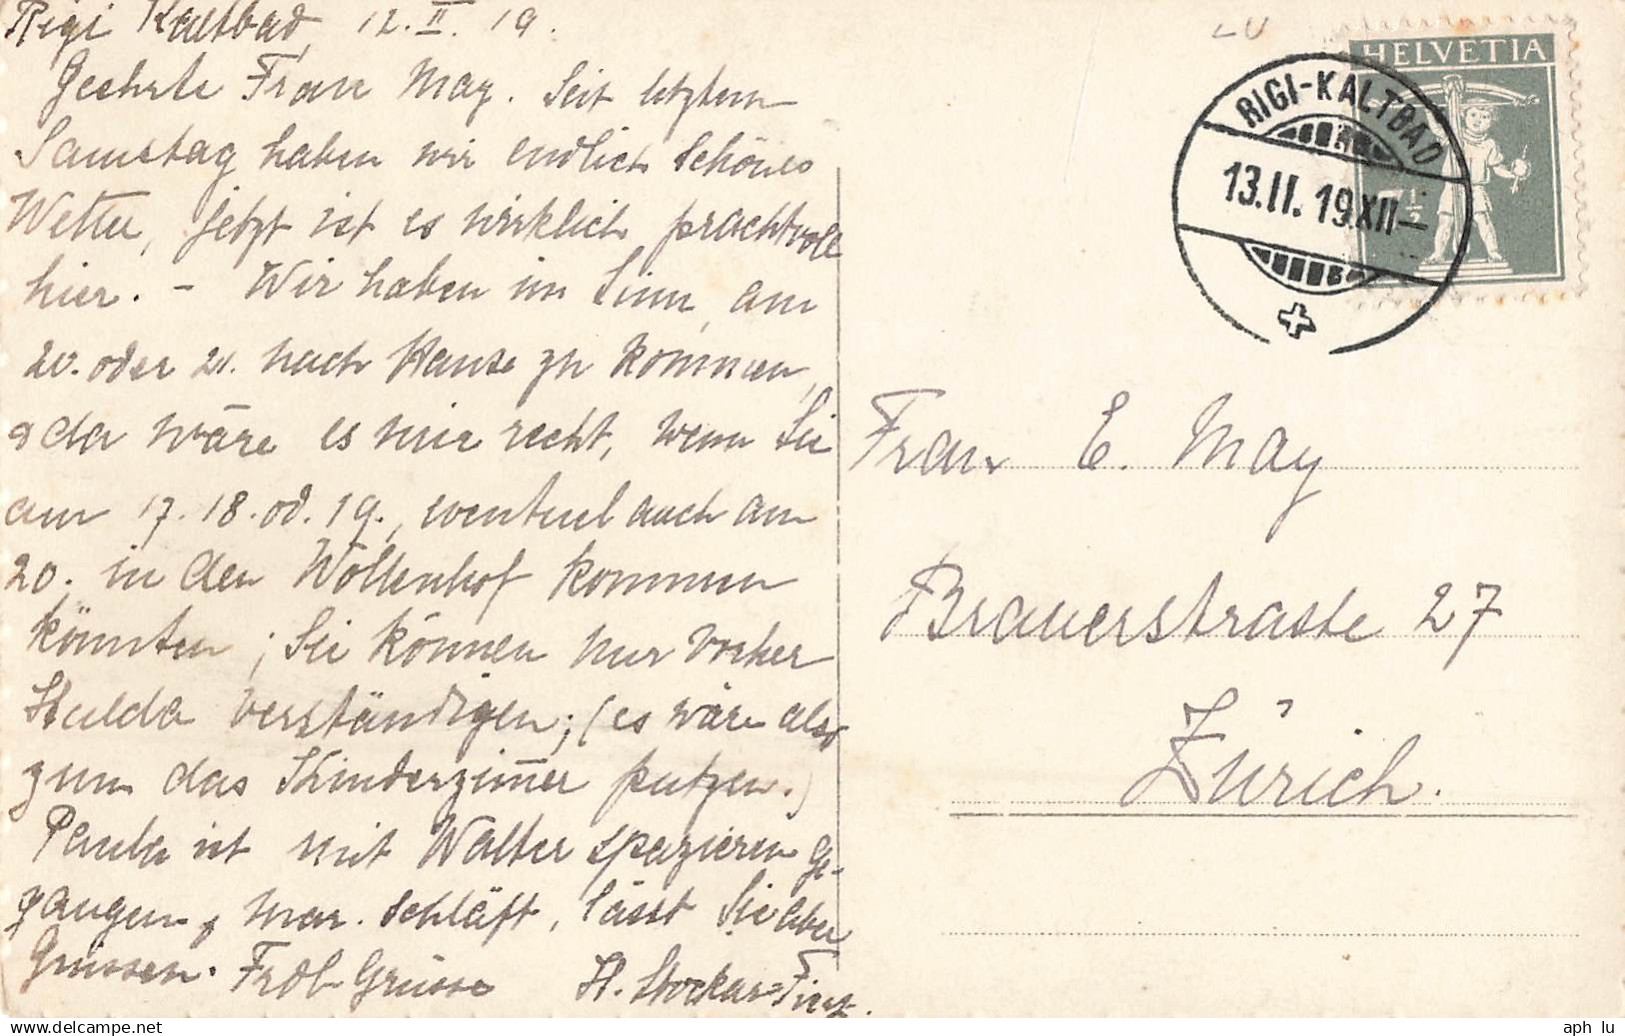 Rigi Kaltbad, 12. II. 19.
Geehrte Frau May. Seit letztem
Samstag haben wir endlich schönes
Wetter, jetzt ist es wirklich prachtvoll
hier. – Wir haben im Sinn, am
20. oder 21. nach Hause zu kommen,
& da wäre es mir recht, wenn Sie
am 17. 18. od. 19., eventuel auch am
20. in den Wollenhof kommen
könnten; Sie können nur vorher
Hulda verständigen; (es wäre also
zum das Kinderzimmer putzen.)
Paula ist mit Walter spazieren ge-
gangen, Mar. schläft, lässt Sie aber
Grüssen. Grüsse H. Stockar-
HELVETIA
RIGI-KALTBAD
13.II.19.XII–
7½
Frau E. May
Brauerstrasse 27
Zürich.
aph_lu